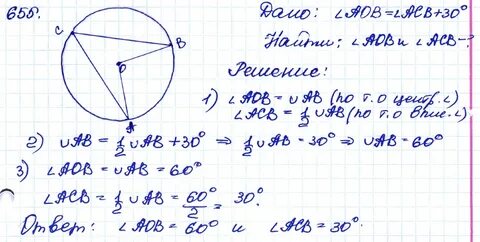 655.
C
B
O
A
Дано: ∠AOB=∠ACB+30°
Найти: ∠AOB и ∠ACB-?
Решение:
1) ∠AOB = ∪AB (по т.о центр.∠)
∠ACB = 1/2 ∪AB (по т.о впис.∠)
2) ∪AB = 1/2 ∪AB +30° ⇒ 1/2 ∪AB = 30° ⇒ ∪AB = 60°
3) ∠AOB = ∪AB = 60°
∠ACB = 1/2 ∪AB = 60°/2 = 30°.
Ответ: ∠AOB = 60° и ∠ACB = 30°.